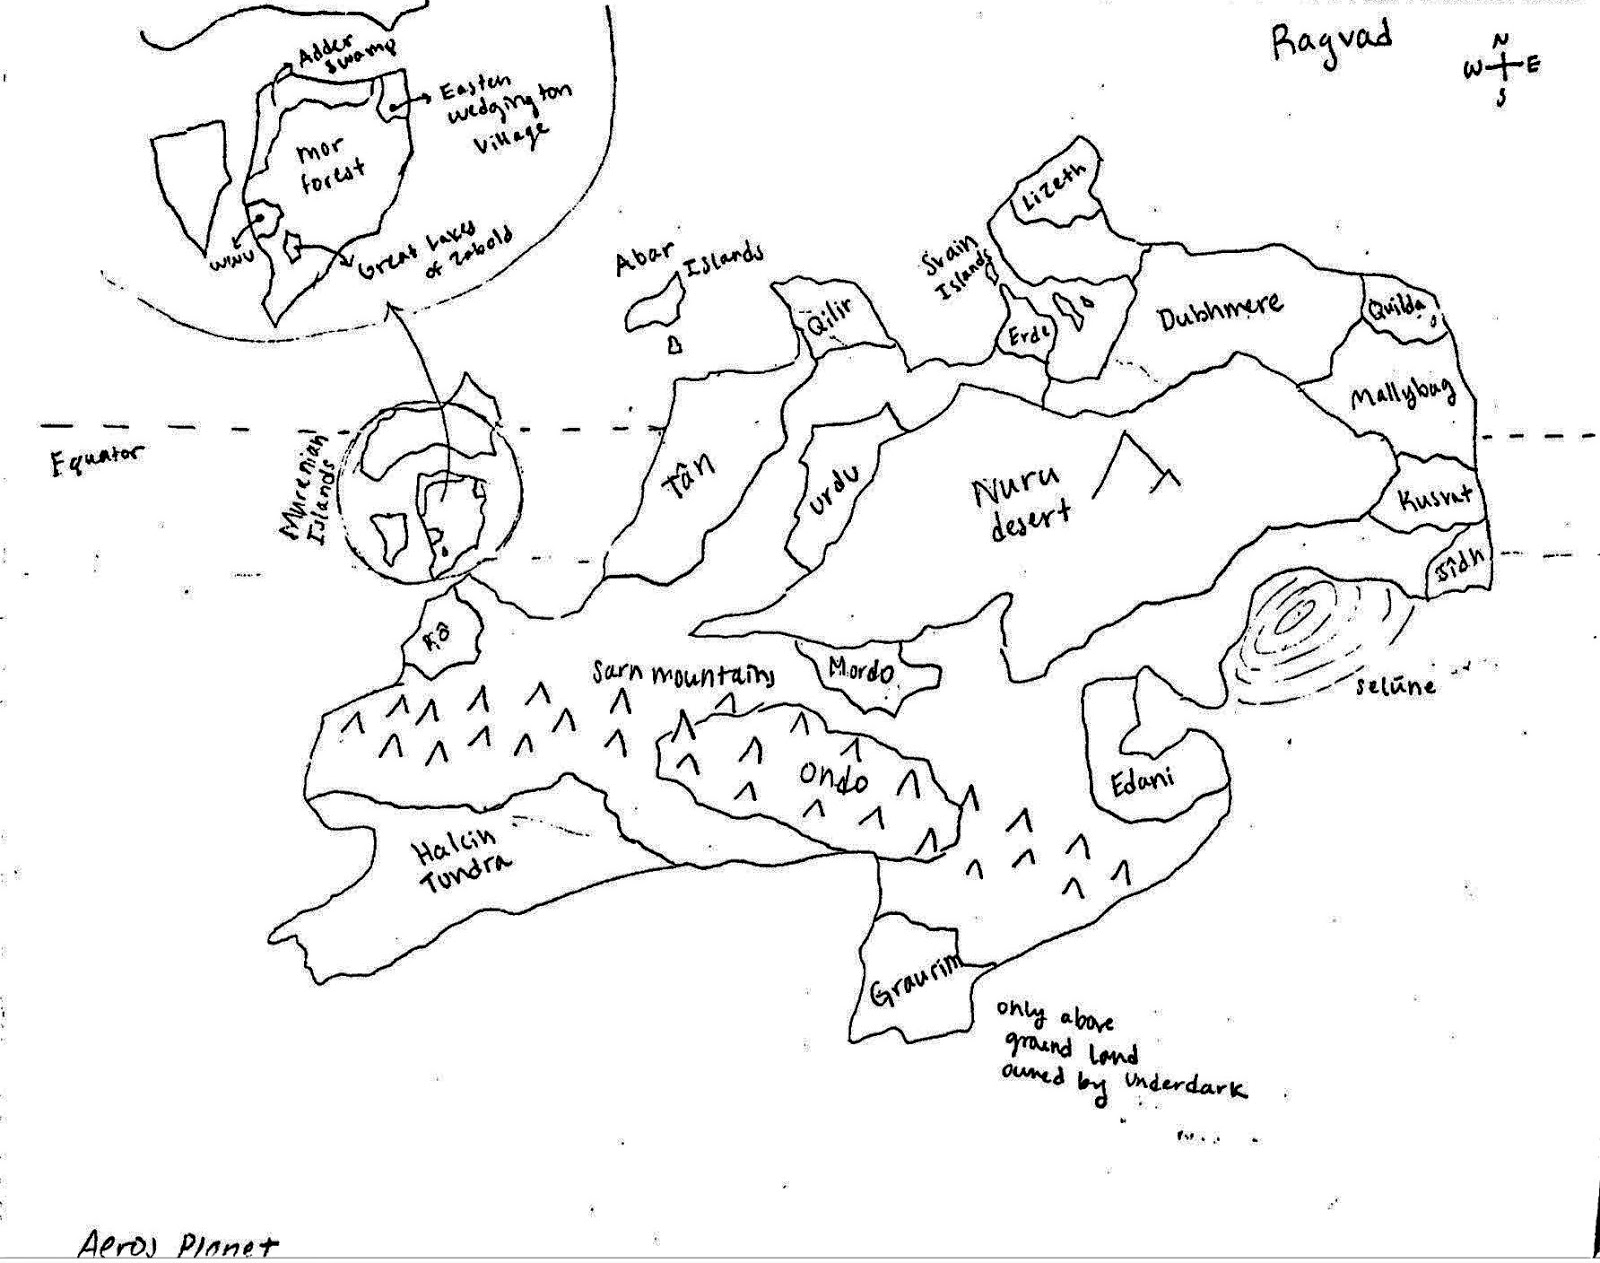 Ragvad
N
W E
S
Adder
swamp
Easten
wedgington
village
mor
forest
WWU
Great Lakes
of Zabold
Lizeth
Abar
Islands
Srain
Islands
Qilir
Erde
Dubhmere
Quilda
Mallybag
Equator
Murenian
Islands
Tân
urdu
Nuru
desert
Kusrat
Jîdh
Râ
Sarn mountains
Mordo
selūne
Ondo
Edani
Halcin
Tundra
Graurim
only above
ground land
owned by underdark
Aeros Planet